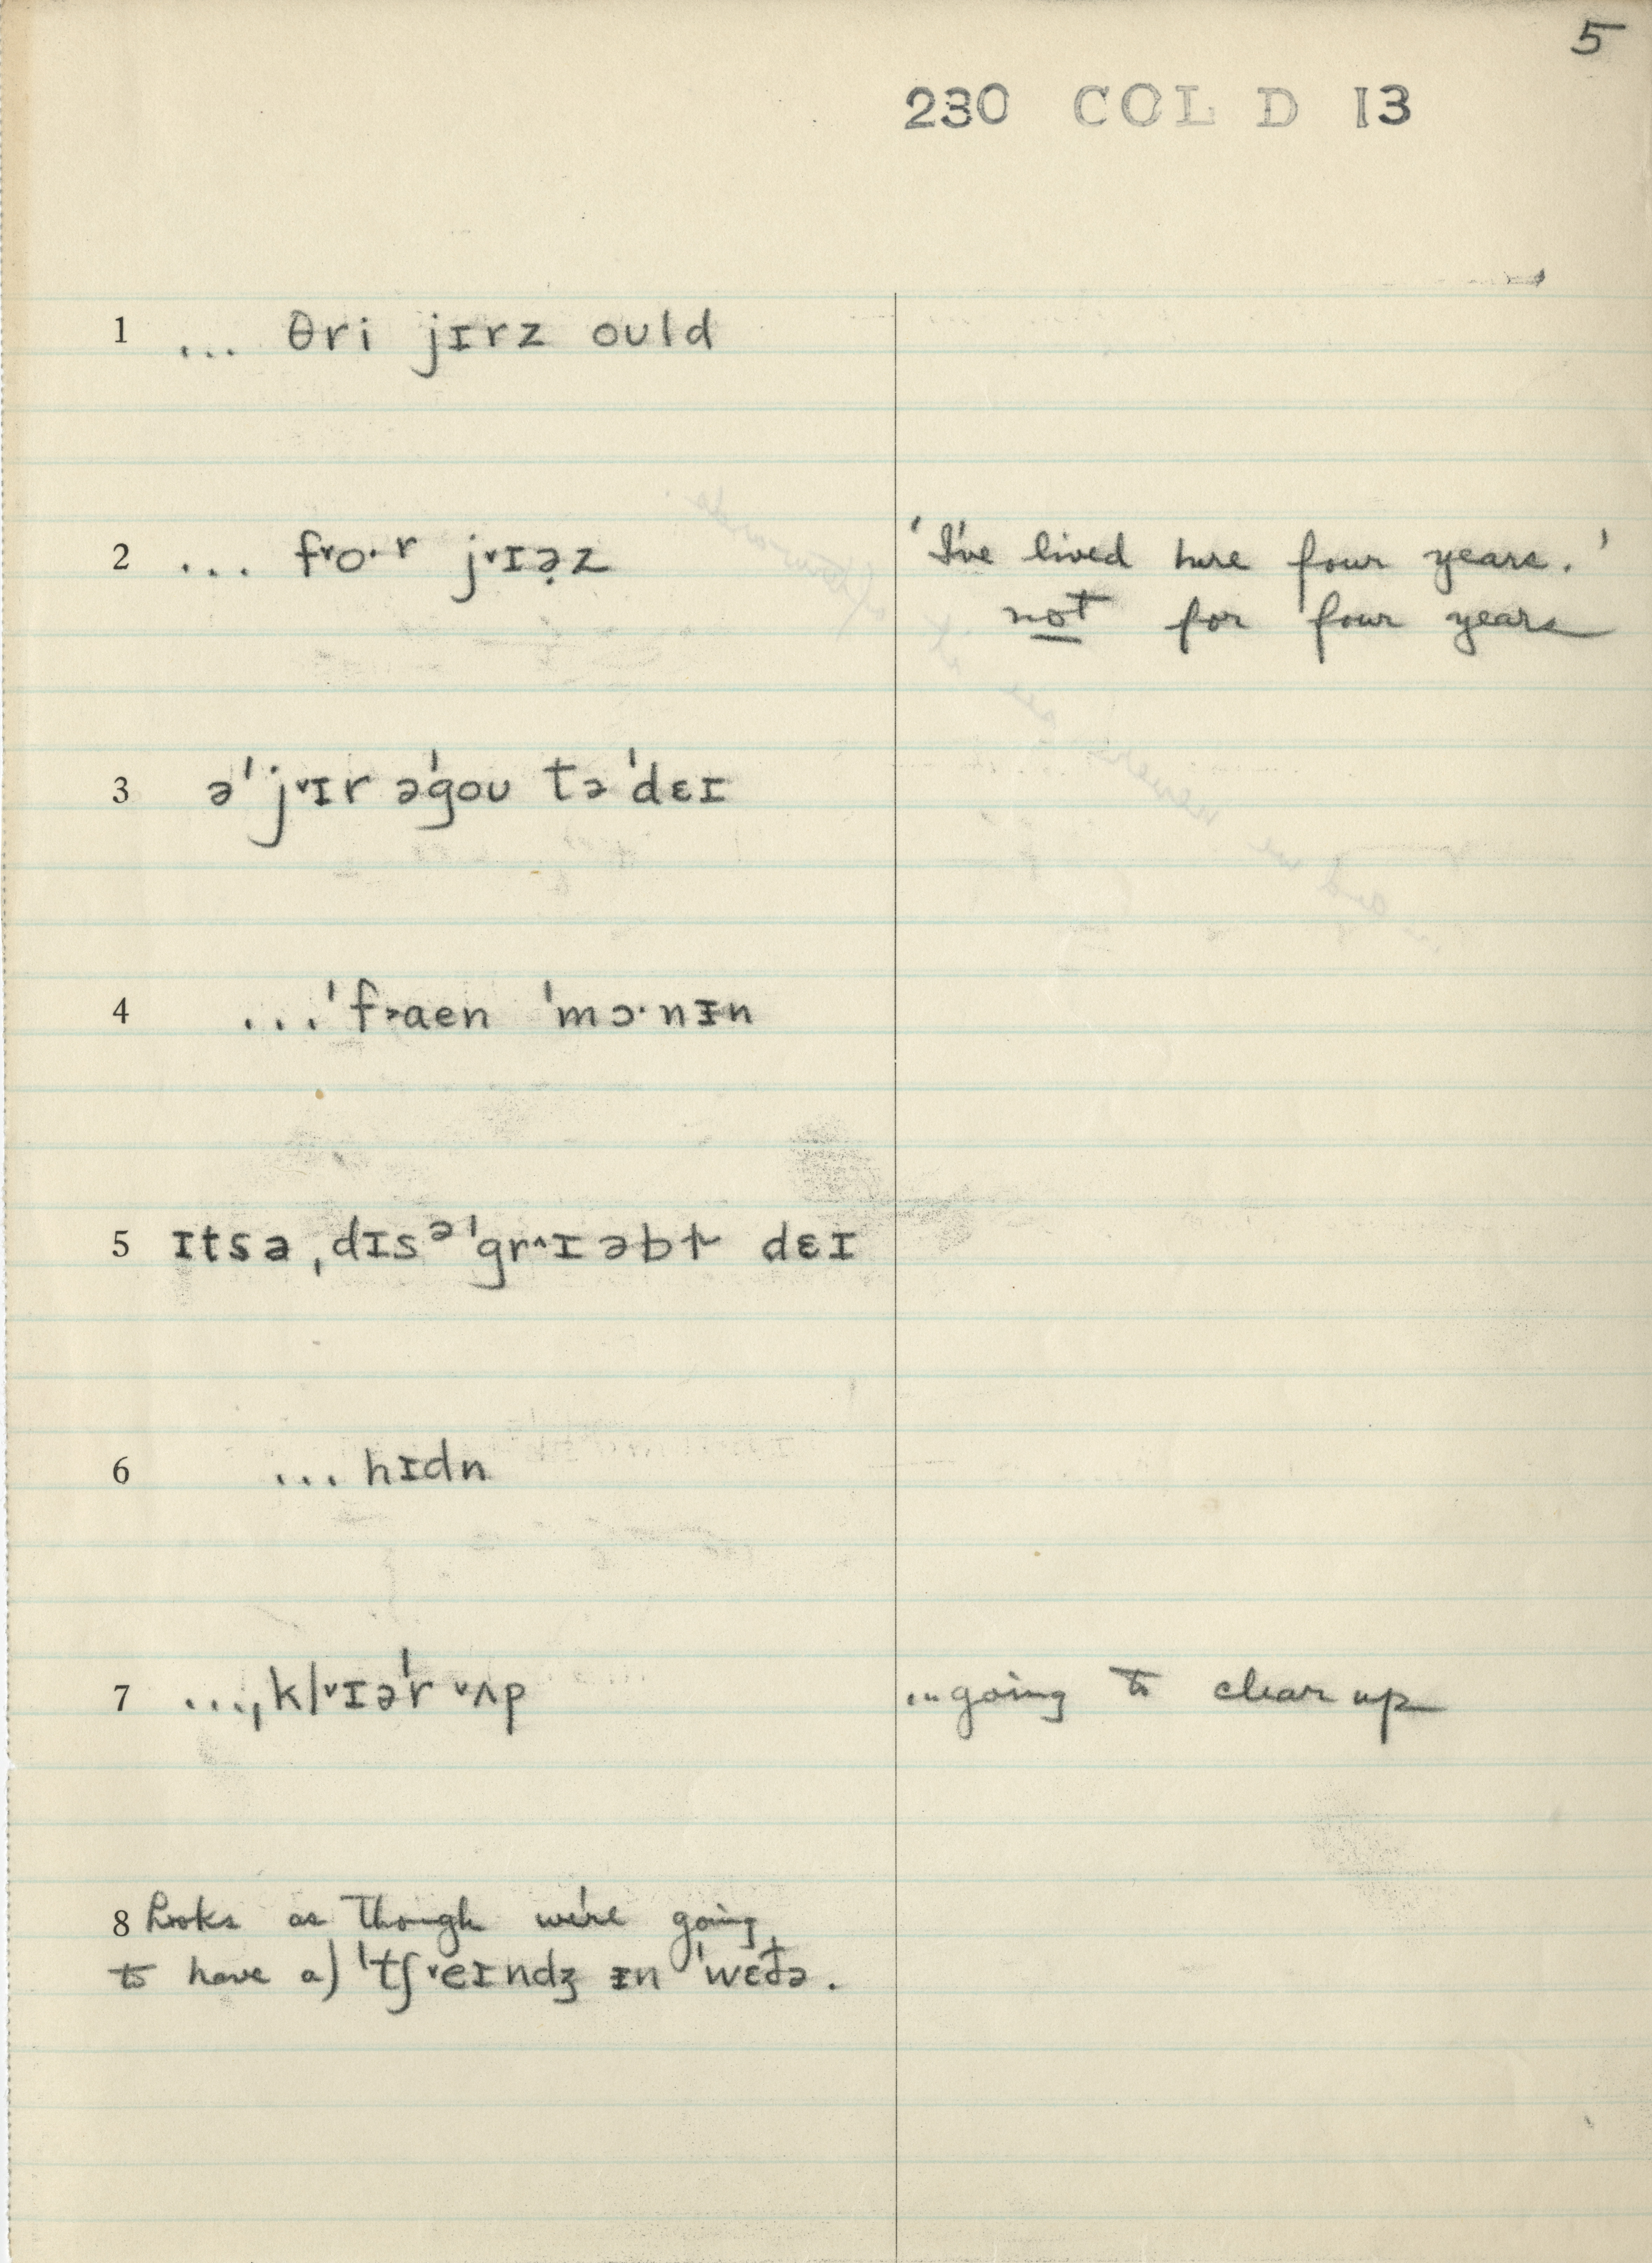 5
230 COL D 13
1 ... θri jɪrz ould
2 ... fˇo·r jˇɪə̣z 'I've lived here four years.'
not for four years
3 ə'jˇɪr ə'gou tə'dɛɪ
4 ...'f˃aen 'mɔ·nɪn
5 ɪtsə ˌdɪsᵊ'grˆɪəbɫ dɛɪ
6 ... hɪdn
7 ...ˌklˇɪə'r ˇʌp ...going to clear up
8 Looks as though we're going
to have a) 'tʃˇeɪndʒ ɪn 'wɛðə.